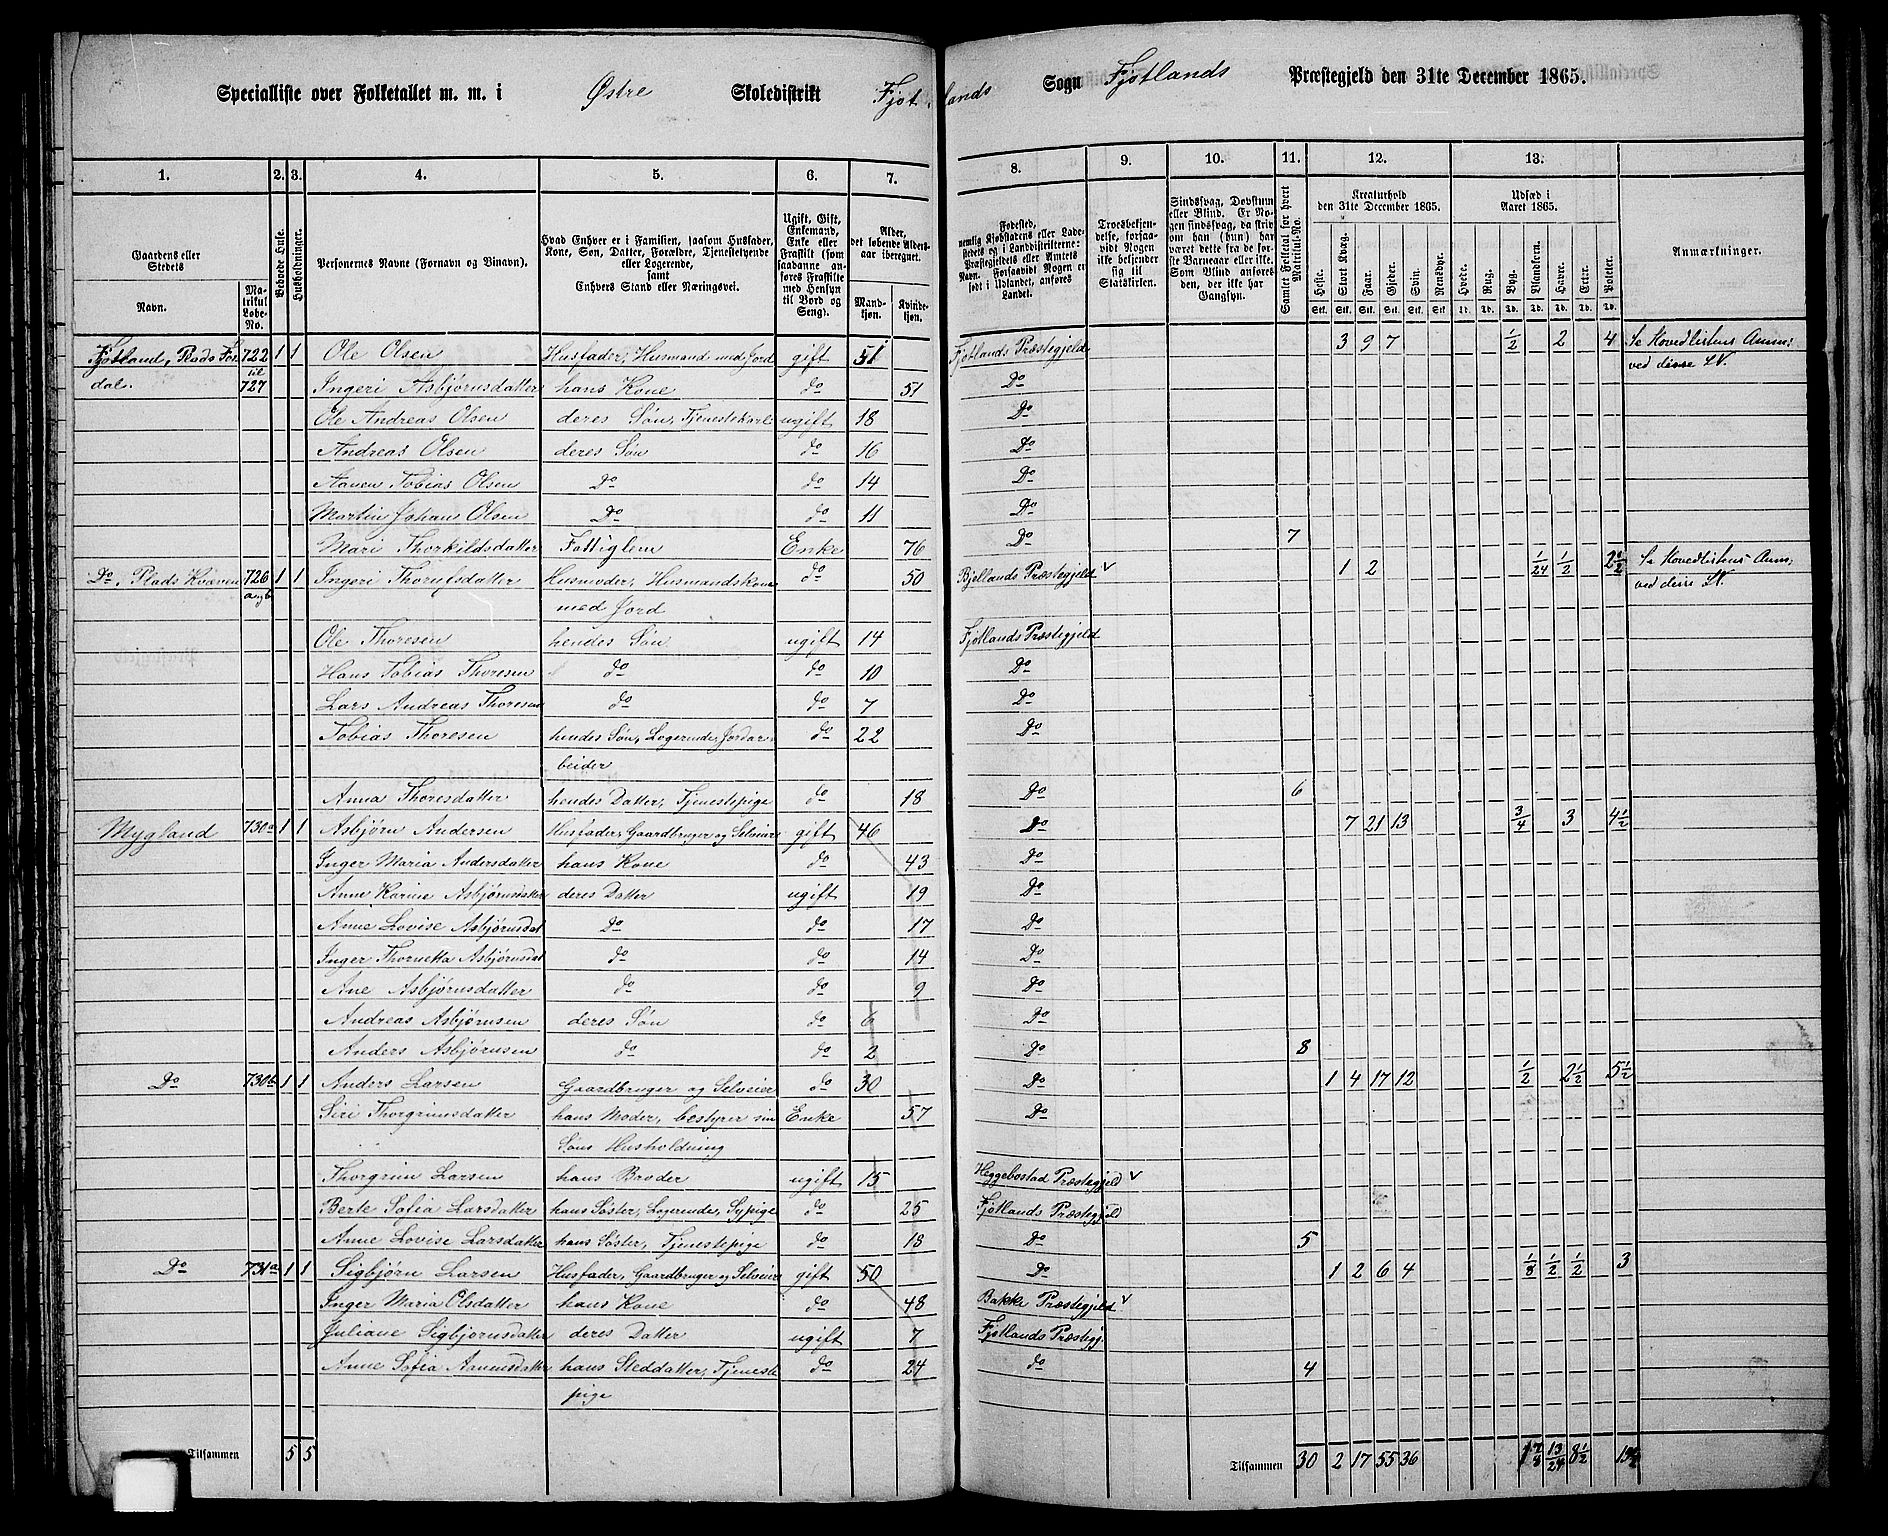 Specialliste over Folketallet m. m. i Østre Skoledistrikt Fjotlands Sogn Fjotlands Præstegjeld den 31te December 1865.
1. 2. 3. 4. 5. 6. 7. 8. 9. 10. 11. 12. 13.
Gaardens eller Stedets
Navn.
Matrikul Løbe-No.
Beboede Huse.
Husholdninger.
Personernes Navne (Fornavn og Vinavn).
Hvad Enhver er i Familien, saasom Husfader, Kone, Søn, Datter, Forældre, Tjenestetyende eller Logerende, samt Enhvers Stand eller Næringsvei.
Ugift, Gift, Enkemand, Enke eller Fraskilt (som saadanne anføres Fraskilte med Hensyn til Bord og Seng).
Alder, det løbende Alders-aar iberegnet.
Mandkjøn. Kvindekjøn.
Fødested, nemlig Kjøbstadens eller Ladestedets eller i Landdistrikterne: Præstegjeldets eller Amtets Navn. Forsaavidt Nogen er født i Udlandet, anføres Landet.
Troesbekjendelse, forsaavidt Nogen ikke bekjender sig til Statskirken.
Sindssvag, Døvstum eller Blind. Er Nogen sindssvag, da skrives om han (hun) har været dette fra de første Barneaar eller ikke. Som Blind anføres den, der ikke har Gangsyn.
Samlet Folketal for hvert Matrikul-No.
Kreaturhold den 31te December 1865.
Heste. Stort Kvæg. Faar. Gjeder. Svin. Rensdyr.
Udsæd i Aaret 1865.
Hvede. Rug. Byg. Blandkorn. Havre. Erter. Poteter.
Anmærkninger.
Fjotland, Plads 722 1 1 Ole Olsen Husfader, Husmand med Jord gift 51 Fjotlands Præstegjeld 3 9 7 1/2 2 4 Se Hovedlistens Anm:
dal. til 727 Ingeri Asbjørnsdatter hans Kone do 51 Do ved disse LN.
Ole Andreas Olsen deres Søn, Tjenestekarl ugift 18 Do
Andreas Olsen deres Søn do 16 Do
Aanen Tobias Olsen Do do 14 Do
Martin Johan Olsen Do do 11 Do
Mari Thorkildsdatter Fattiglem Enke 76 Do 7
Do, Plads Kvæven 726 1 1 Ingeri Husmoder, Husmandskone do 50 Bjellands Præstegjeld V 1 2 1/24 1/2 2 1/2 Se Hovedlistens Anm,
a og b med Jord ved disse LN.
Ole Thoresen hendes Søn ugift 14 Fjotlands Præstegjeld
Hans Tobias Thoresen do do 10 Do
Lars Andreas Thoresen do do 7 Do
Tobias Thoresen hendes Søn, Logerende, Jordar- do 22 Do
beider
Anna Thoresdatter hendes Datter, Tjenestepige do 18 Do 6
Mygland 730a 1 1 Asbjørn Andersen Husfader, Gaardbruger og Selveier gift 46 Do 7 21 13 3/4 3 4 1/2
Inger Maria Andersdatter hans Kone do 43 Do
Anne Karine Asbjørnsdatter deres Datter ugift 19 Do
Anne Lovise Asbjørnsdat Do do 17 Do
Inger Thornetta Asbjørnsdat do do 14 Do
Ane Asbjørnsdatter do do 9 Do
Andreas Asbjørnsen deres Søn do 6 Do
Anders Asbjørnsen do do 2 Do 8
Do 730b 1 1 Anders Larsen Gaardbruger og Selveier do 30 Do 1 4 17 12 1/2 2 1/2 5 1/2
Siri Thorgrimsdatter hans Moder, bestyrer sin Enke 57 Do
Søns Husholdning
Thorgrim Larsen hans Broder ugift 15 Heggebostad Præstegjeld V
Berte Sofia Larsdatter hans Søster, Logerende, Sypige do 25 Fjotlands Præstegjeld
Anne Lovise Larsdatter hans Søster, Tjenestepige do 18 Do 5
Do 731a 1 1 Sigbjørn Larsen Husfader, Gaardbruger og Selveier gift 50 Do 1 2 6 4 1/8 1/2 1/2 3
Inger Maria Olsdatter hans Kone do 48 Bakke Præstegjeld V
Juliane Sigbjørnsdatter deres Datter ugift 7 Fjotlands Præstegj.
Anne Sofia Aanensdatter hans Steddatter, Tjeneste- do 24 do 4
pige
Tilsammen 5 5 Tilsammen 30 2 17 55 36 1 7/8 13/24 8 1/2